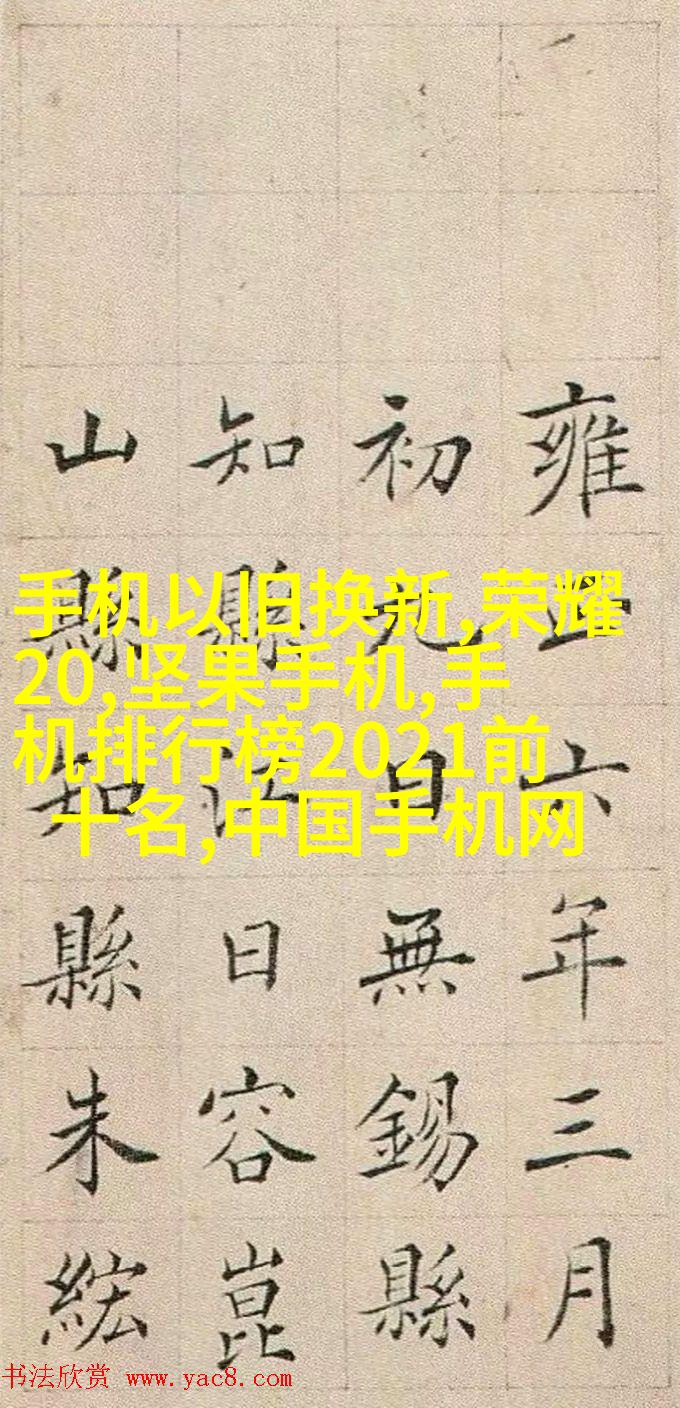 雍正六年三月
初九日無錫縣
知縣江日容崑
山縣知縣朱綋
手机以旧换新,荣耀
20,坚果手机,手
机排行榜2021前
十名,中国手机网
书法欣赏 www.yac8.com